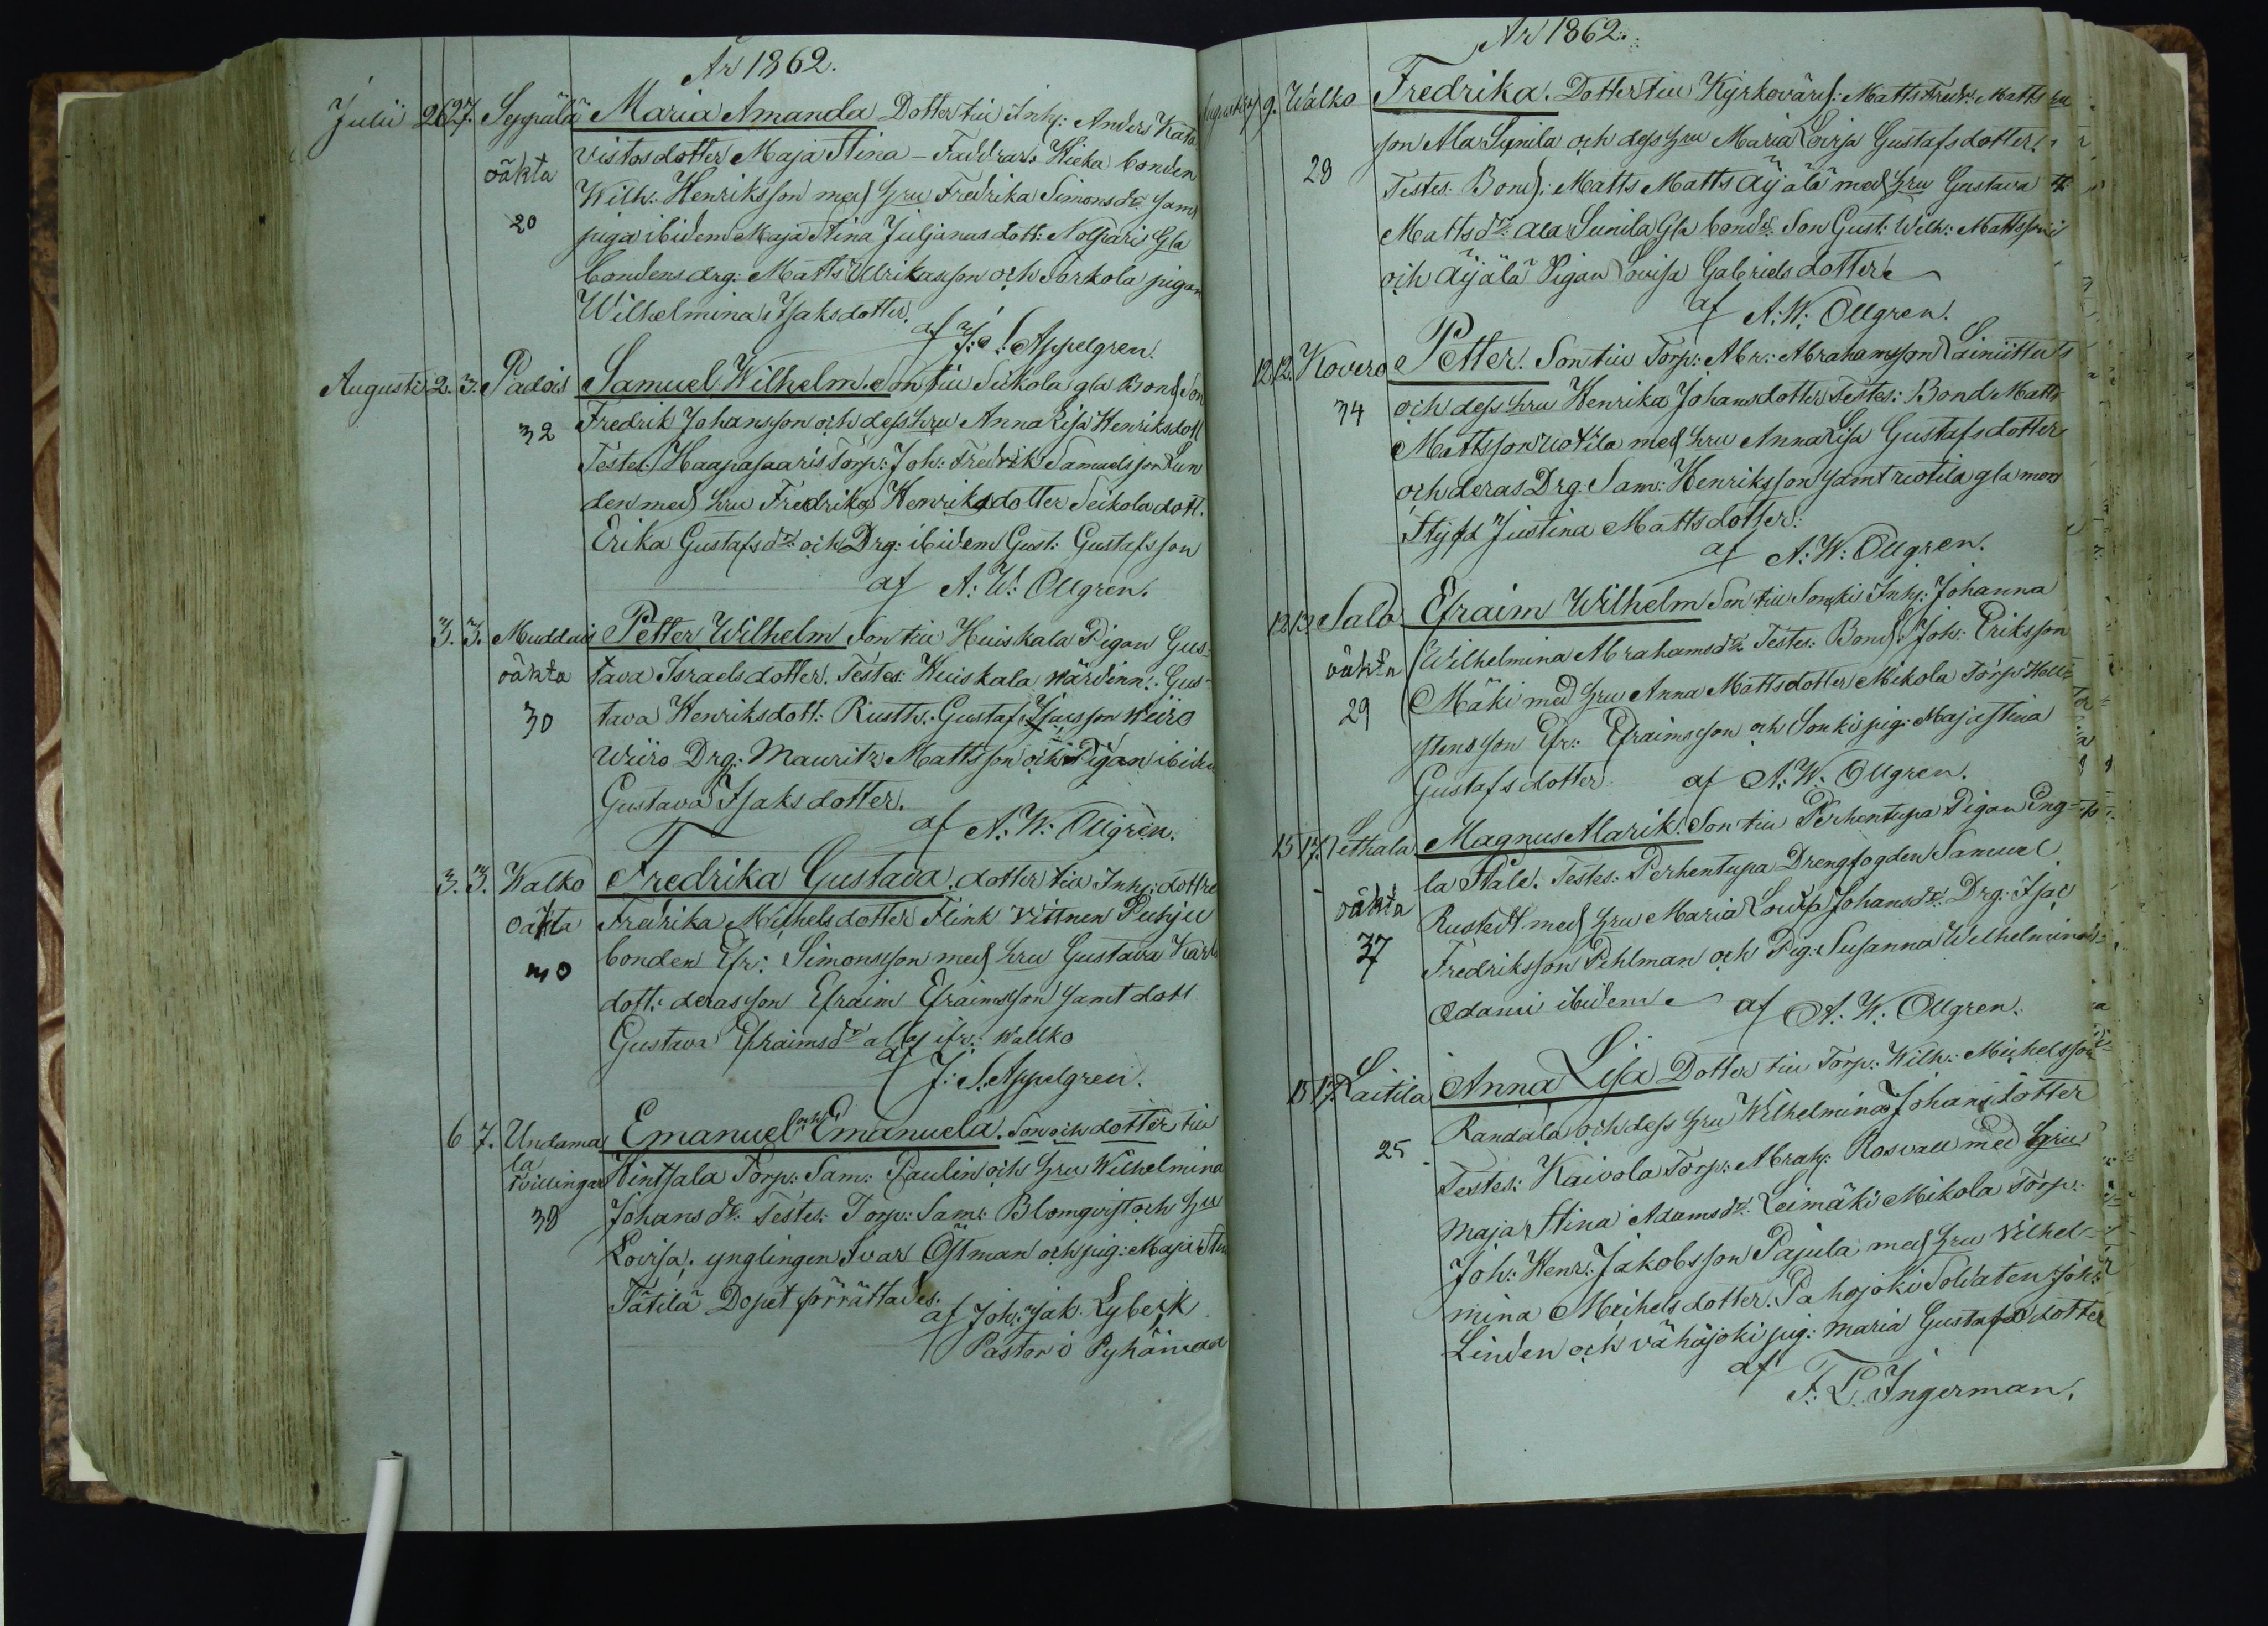 År 1862.
Julii 26 27. Seppälä Maria Amanda Dotter till Inh: Anders Kata
oäkta vistosdotter Maja Stina – Faddrar: Hieka bonden
Wilh: Henriksson med hru Fredrika Simonsdr samt
20 pigan ibidem Maja Stina Juljanas dott: Nolpari Gla
bondens drg: Matts Ulrikasson och Sorkola pigan
Wilhelmina Isaksdotter.
af J: S: Appelgren.
Augusti 2. 3. Padois Samuel Wilhelm Son till Seikola gla Bond Son
32 Fredrik Johansson och dess hru Anna Lisa Henriksdott
Testes: Haapasaaris Torp: Joh: Fredrik Samuelsson Lun
den med hru Fredrika Henriksdotter Seikola dott.
Erika Gustafsdr och Drg: ibidem Gust: Gustafsson
af A: W: Ollgren.
3. 3. Muddais Petter Wilhelm Son till Huiskala Pigan Gus-
oäkta tava Israelsdotter. Testes: Huiskala Wärdinn: Gus-
30 tava Henriksdott: Rusth: Gustaf Isacsson Wiiro
Wiiro Drg: Mauritz Mattsson och Pigan ibidem
Gustava Isaksdotter.
af A: W: Ollgren.
3. 3. Walko Fredrika Gustava. dotter till Inh: dottre
oäkta Fredrika Michelsdotter Flink Vittnen Puhju
30 bonden Efr: Simonsson med hru Gustava Karls
dott: deras son Efraim Efraimsson samt dott
Gustava Efraimsdr alla ifr: Wallko
af J: S. Appelgren.
6 7. Undama Emanuel och Emanuela. Son och dotter till
la
tvillingar Hintsala Torp: Sam: Paulin och hru Wilhelmina
38 Johansdr: Testes: Torp: Sam: Blomqvist och hru
Lovisa, ynglingen Ivar Östman och pig: Maja Stin
Tätilä Dopet förrättades.
af Joh: Jak. Lybeck
Pastor i Pyhämaa
År 1862.
Augusti 7 9. Walko Fredrika. Dotter till Kyrkovärd: Matts Fredr: Matts
son Ala Sunila och dess hru Maria Lovisa Gustafsdotter.
28 Testes: Bond: Matts Matts Äijälä med hru Gustava
Mattsdr: Ala Sunila Gla bonds: Son Gust: Wilh: Mattsson
och Äijälä Pigan Lovisa Gabrielsdotter
af A: W: Ollgren.
12. 12. Kovero Petter. Son till Torp: Abr: Abrahamsson Läiniittu
34 och dess hru Henrika Johansdotter Testes: Bond Matts
Mattsson Uotila med hru Anna Lisa Gustafsdotter
och deras Drg: Sam: Henriksson samt Uotila gla mors
Styfd Justina Mattsdotter:
af A: W: Ollgren.
12 13. Salo Efraim Wilhelm Son till Sonki Inh: Johanna
oäkta Wilhelmina Abrahamsdr Testes: Bond: Joh: Eriksson
29 Mäki med hru Anna Mattsdotter Mikola Torp Holl
stensson Efr: Efraimsson och Sonki pig: Maja Stina
Gustafsdotter af A: W: Ollgren.
15 17. Tethala Magnus Alarik. Son till Perhentupa Pigan Eng-
la Stale. Testes: Perhentupa Drengfogden Samuel
oäkta Rustedt med hru Maria Lovisa Johansdr: Drg: Isac
37 Fredriksson Pihlman och Pig: Susanna Wilhelmina
Odanii ibidem af A: W: Ollgren.
15 17. Laitila Anna Lisa Dotter till Torp: Wilh: Michelsson
25 Randala och dess hru Wilhelmina Johansdotter
Testes: Kaivola Torp: Abrah: Rosvall med hru
Maja Stina Adamsdr: Leimäki Mikola Torp:
Joh: Henr: Jakobsson Pajula med hru Vilhel-
mina Michelsdotter. Pahojoki Soldaten Joh:
Linden och vähäjoki pig: Maria Gustafsdotter
af F. L. Ingerman.